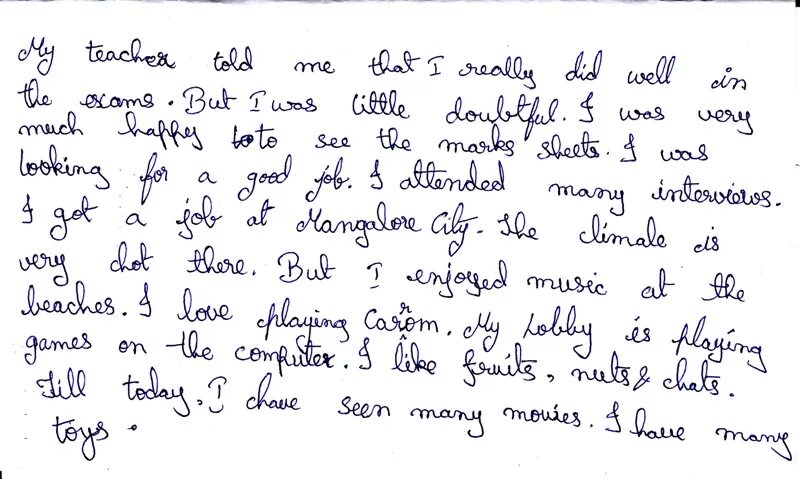 My teacher told me that I really did well in
the exams. But I was little doubtful. I was very
much happy to to see the marks sheets. I was
looking for a good job. I attended many interviews.
I got a job at Mangalore City. The climate is
very hot there. But I enjoyed music at the
beaches. I love playing Carrom. My hobby is playing
games on the computer. I like fruits, nuts & chats.
Till today, I have seen many movies. I have many
toys.